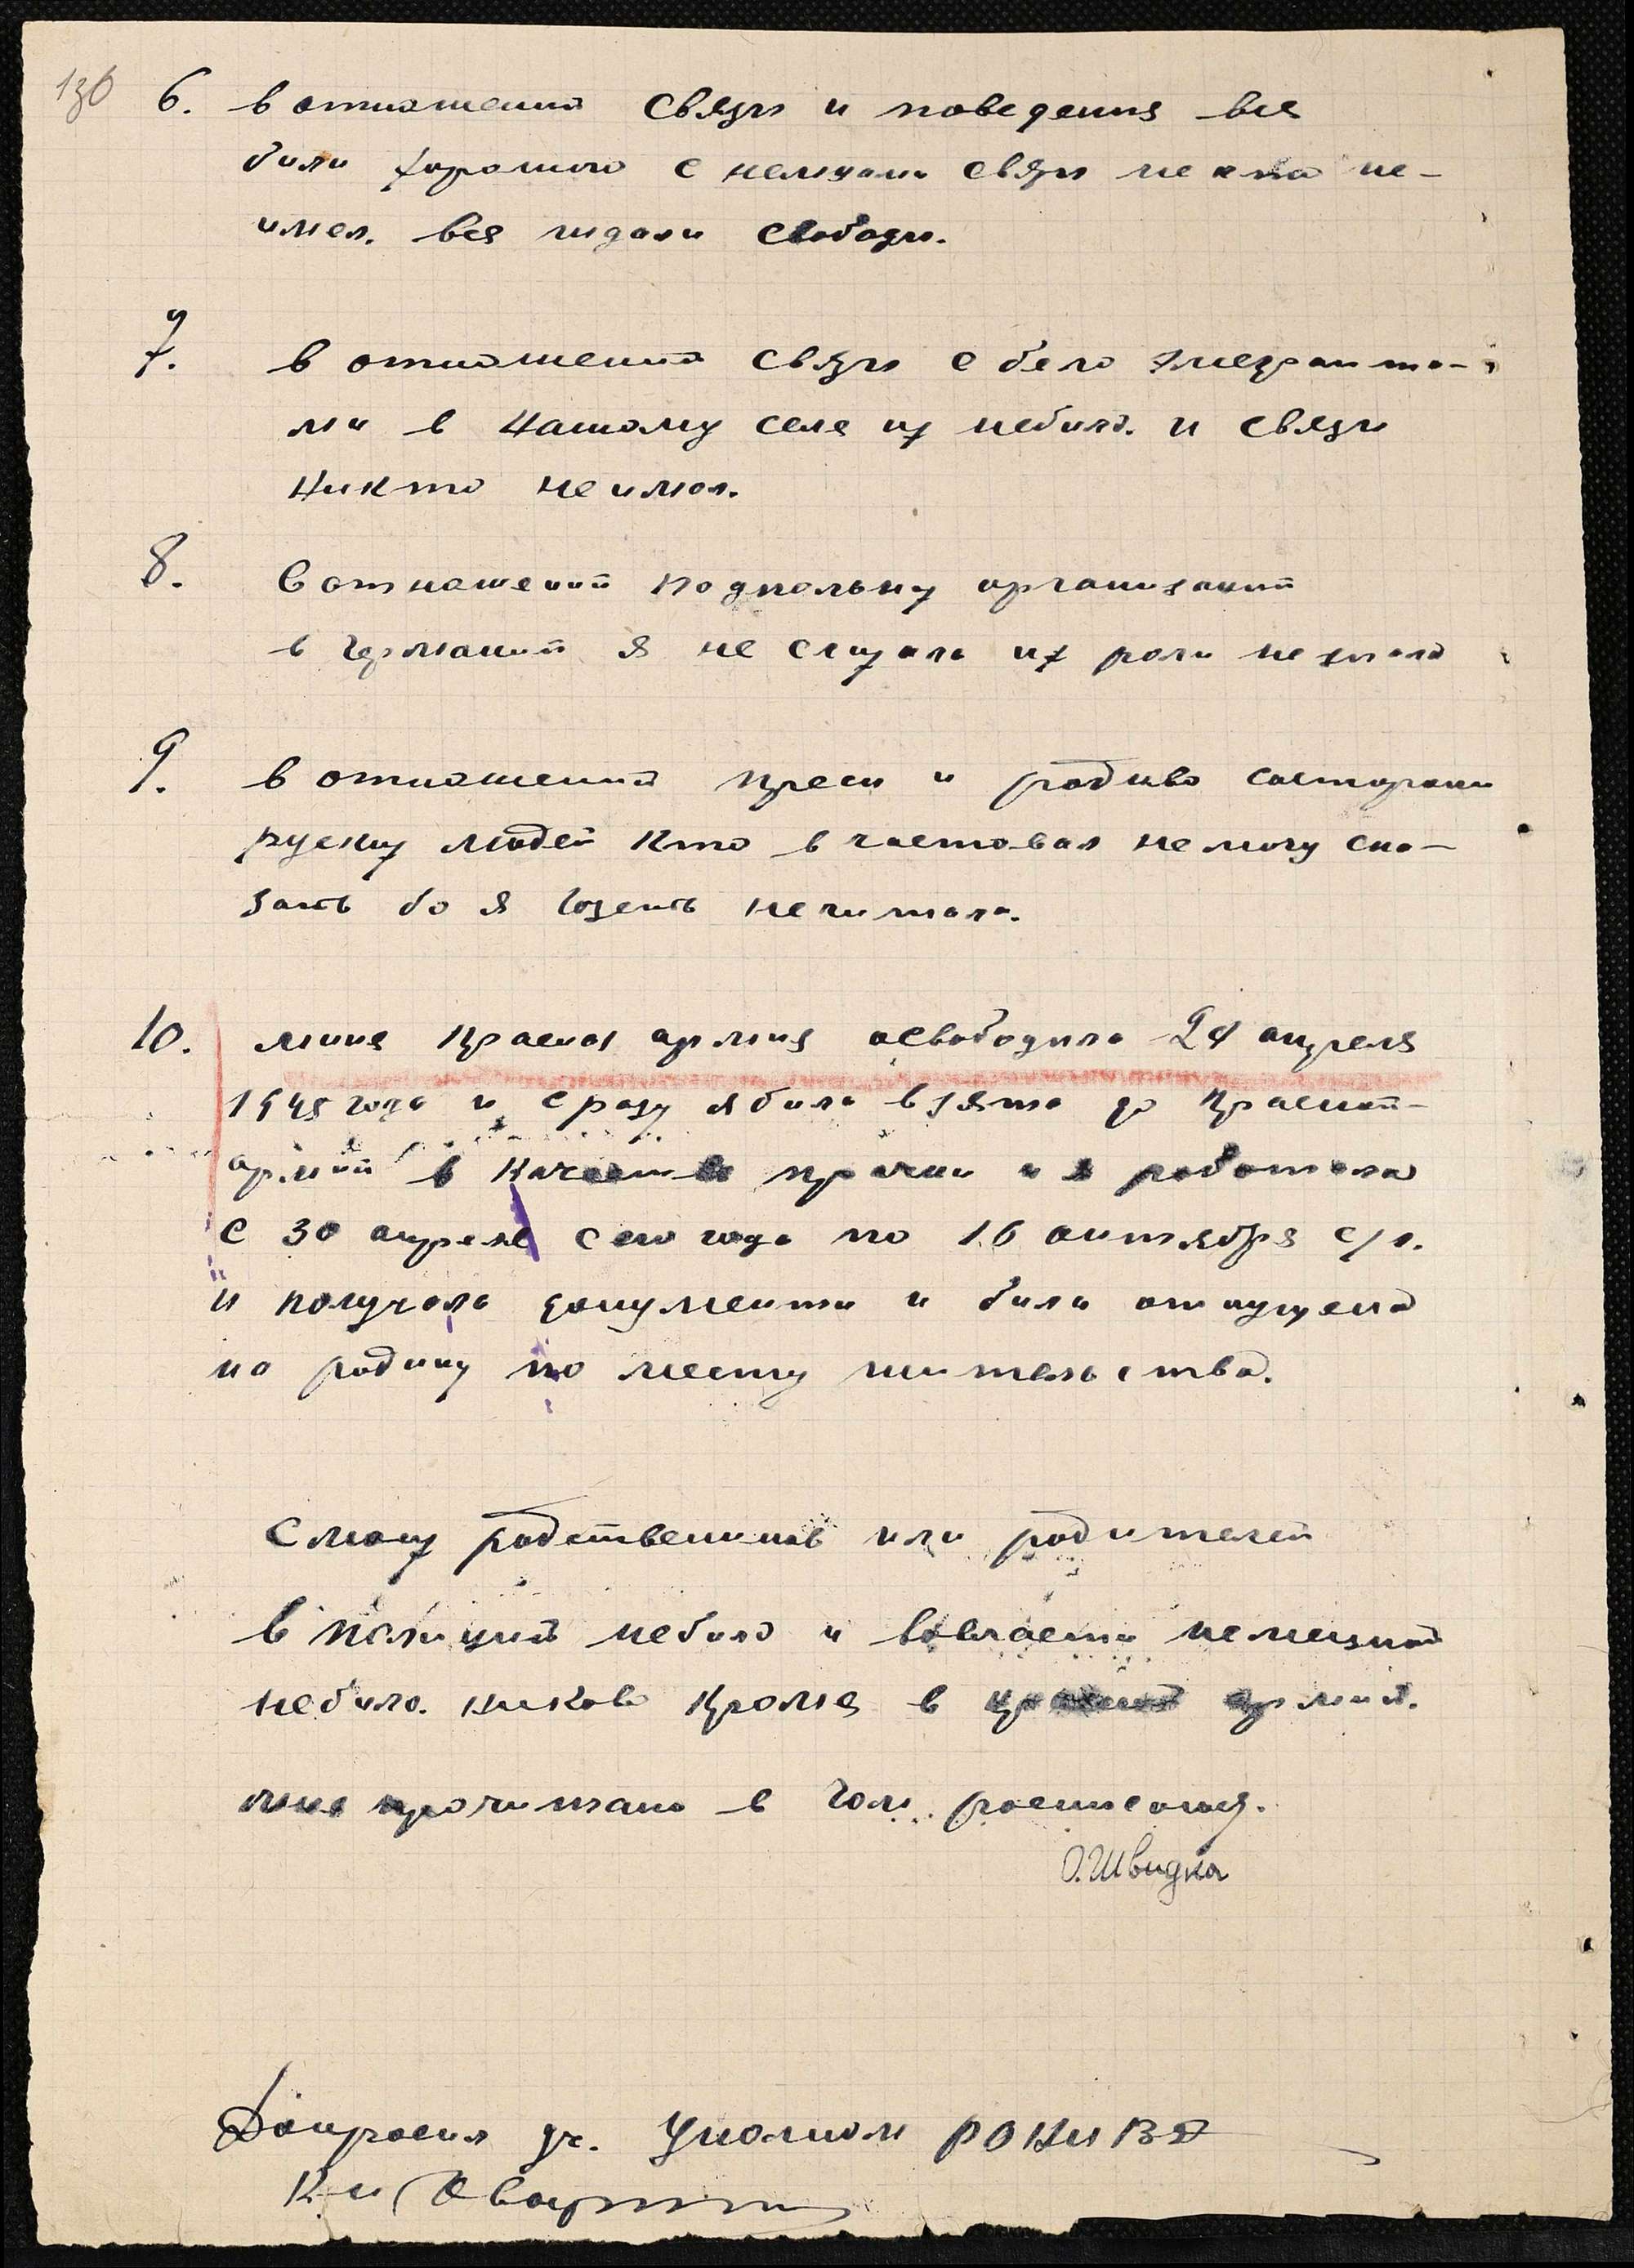 136
6. в отношений связи и поведения вся
били хорошого с немцами связи нехто не-
имел. вся чидали свободи.
7. в отношений связи с бело эмегранта-
ми в нашому селе их небило. и связи
никто неимел.
8. в отношений подпольну организаций
в Германий я не слухала их роли не знала
9. в отношений преси и радиво состорони
руских людей кто вчаствовал немогу ска-
зать бо я газеть нечитала.
10. мине красная армия асвободила 24 апреля
1945 года и сразу я била взята до красной-
армий в качестве прачки и я работала
с 30 апреля сего года по 16 октября с/г.
и получала документи и била отпущена
на родину по месту жительства.
С моих родствеников или родителей
в полиций небило и вовласти немецкой
небило. никово кроме в красной армий.
мне прочитано в чом росписоюсь.
О. Швидка
Допросил уч. Уполном РО НКВД